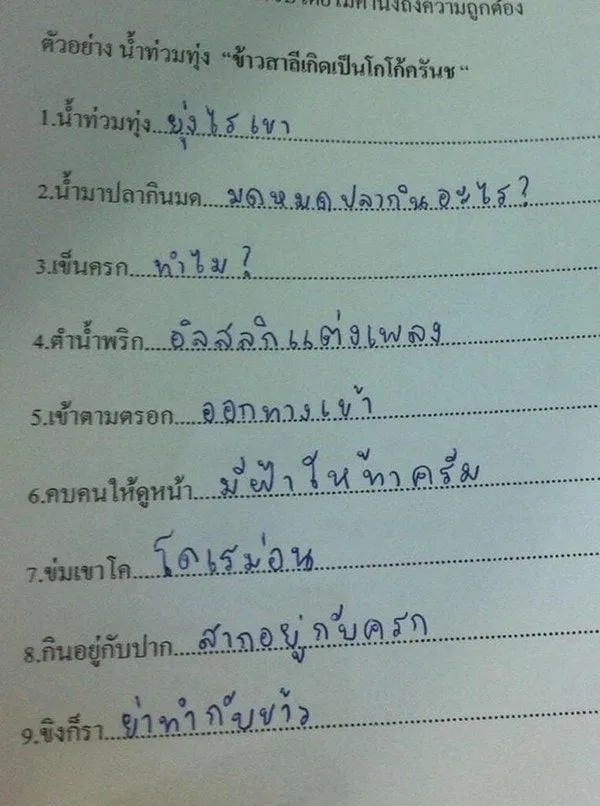 โดยไม่คำนึงถึงความถูกต้อง
ตัวอย่าง น้ำท่วมทุ่ง "ข้าวสาลีเกิดเป็นโกโก้ครันช"
1.น้ำท่วมทุ่ง....ยุ่งไรเขา
2.น้ำมาปลากินมด....มดหมดปลากินอะไร?
3.เข็นครก....ทำไม?
4.ตำน้ำพริก....อัสสลิกแต่งเพลง
5.เข้าตามตรอก....ออกทางเข้า
6.คบคนให้ดูหน้า....มีฝ้าให้ทาครีม
7.ข่มเขาโค....โดเรม่อน
8.กินอยู่กับปาก....สากอยู่กับครก
9.ขิงก็รา....ย่าทำกับข้าว